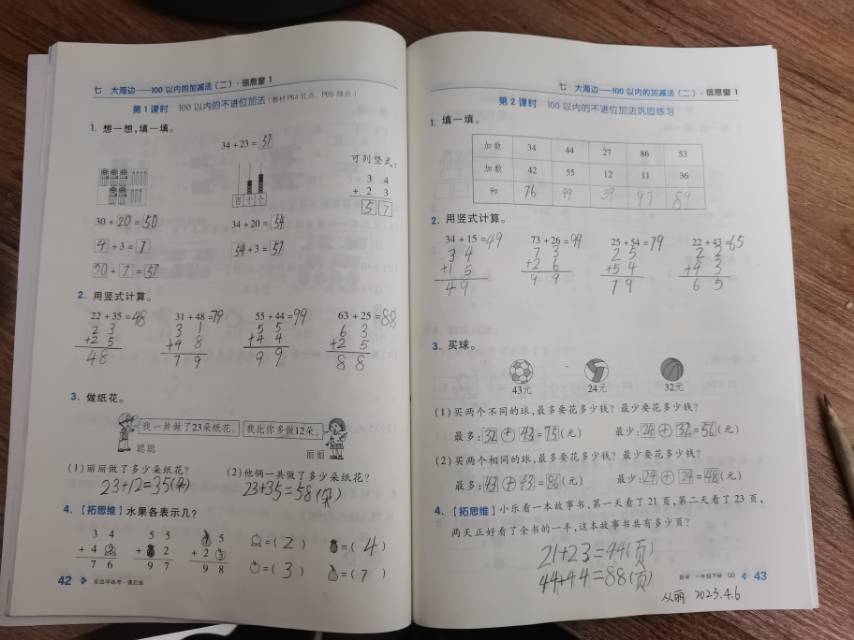 七 大海边——100以内的加减法(二)·信息窗1
第1课时 100以内的不进位加法
1. 想一想,填一填。
34+23=57
可列竖式:
3 4
+ 2 3
5 7
百 十 个
30+20=50
34+20=54
4+3=7
54+3=57
50+7=57
2. 用竖式计算。
22+35=48 31+48=79 55+44=99 63+25=88
2 3 3 1 5 5 6 3
+2 5 +4 8 +4 4 +2 5
4 8 7 9 9 9 8 8
3. 做纸花。
我一共做了23朵纸花。 我比你多做12朵。
聪聪 丽丽
(1)丽丽做了多少朵纸花? (2)他俩一共做了多少朵纸花?
23+12=35(朵) 23+35=58(朵)
4.【拓思维】水果各表示几?
3 4 5 5 5
+ 4 + 2 + 2
7 6 9 7 9 8
=(2) =(4)
=(3) =(7)
42
七 大海边——100以内的加减法(二)·信息窗1
第2课时 100以内的不进位加法巩固练习
1. 填一填。
加数 34 44 27 86 53
加数 42 55 12 11 36
和 76 99 39 97 89
2. 用竖式计算。
34+15=49 73+26=99 25+54=79 22+43=65
3 4 7 3 2 5 2 2
+1 5 +2 6 +5 4 +4 3
4 9 9 9 7 9 6 5
3. 买球。
43元 24元 32元
(1)买两个不同的球,最多要花多少钱?最少要花多少钱?
最多:32+43=75(元) 最少:24+32=56(元)
(2)买两个相同的球,最多要花多少钱?最少要花多少钱?
最多:43+43=86(元) 最少:24+24=48(元)
4.【拓思维】小乐看一本故事书,第一天看了21页,第二天看了23页,
两天正好看了全书的一半,这本故事书共有多少页?
21+23=44(页)
44+44=88(页)
数学 一年级下册 QD 43
从丽 2023.4.6